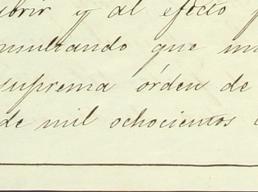 brir y al efecto
nsultando que
suprema órden de
de mil ochocientos